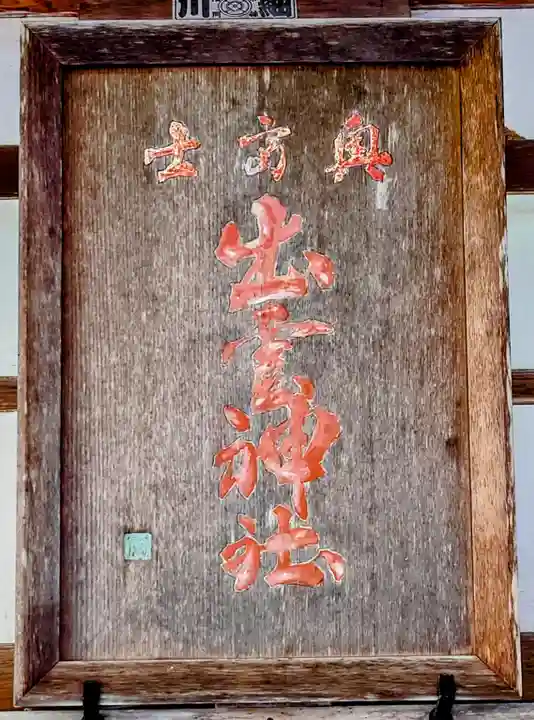 奥富士
出雲神社